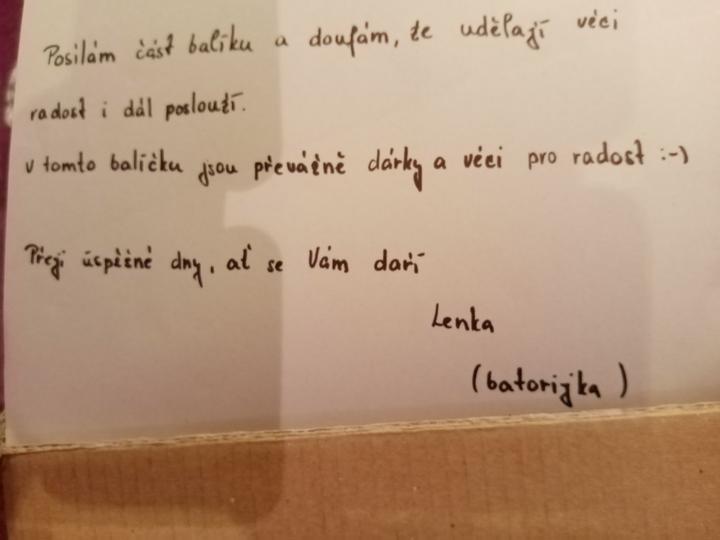 Posílám část balíku a doufám, že udělají věci
radost i dál poslouží.
v tomto balíčku jsou převážně dárky a věci pro radost :-)
Přeji úspěšné dny, ať se Vám daří
Lenka
(batorijka)